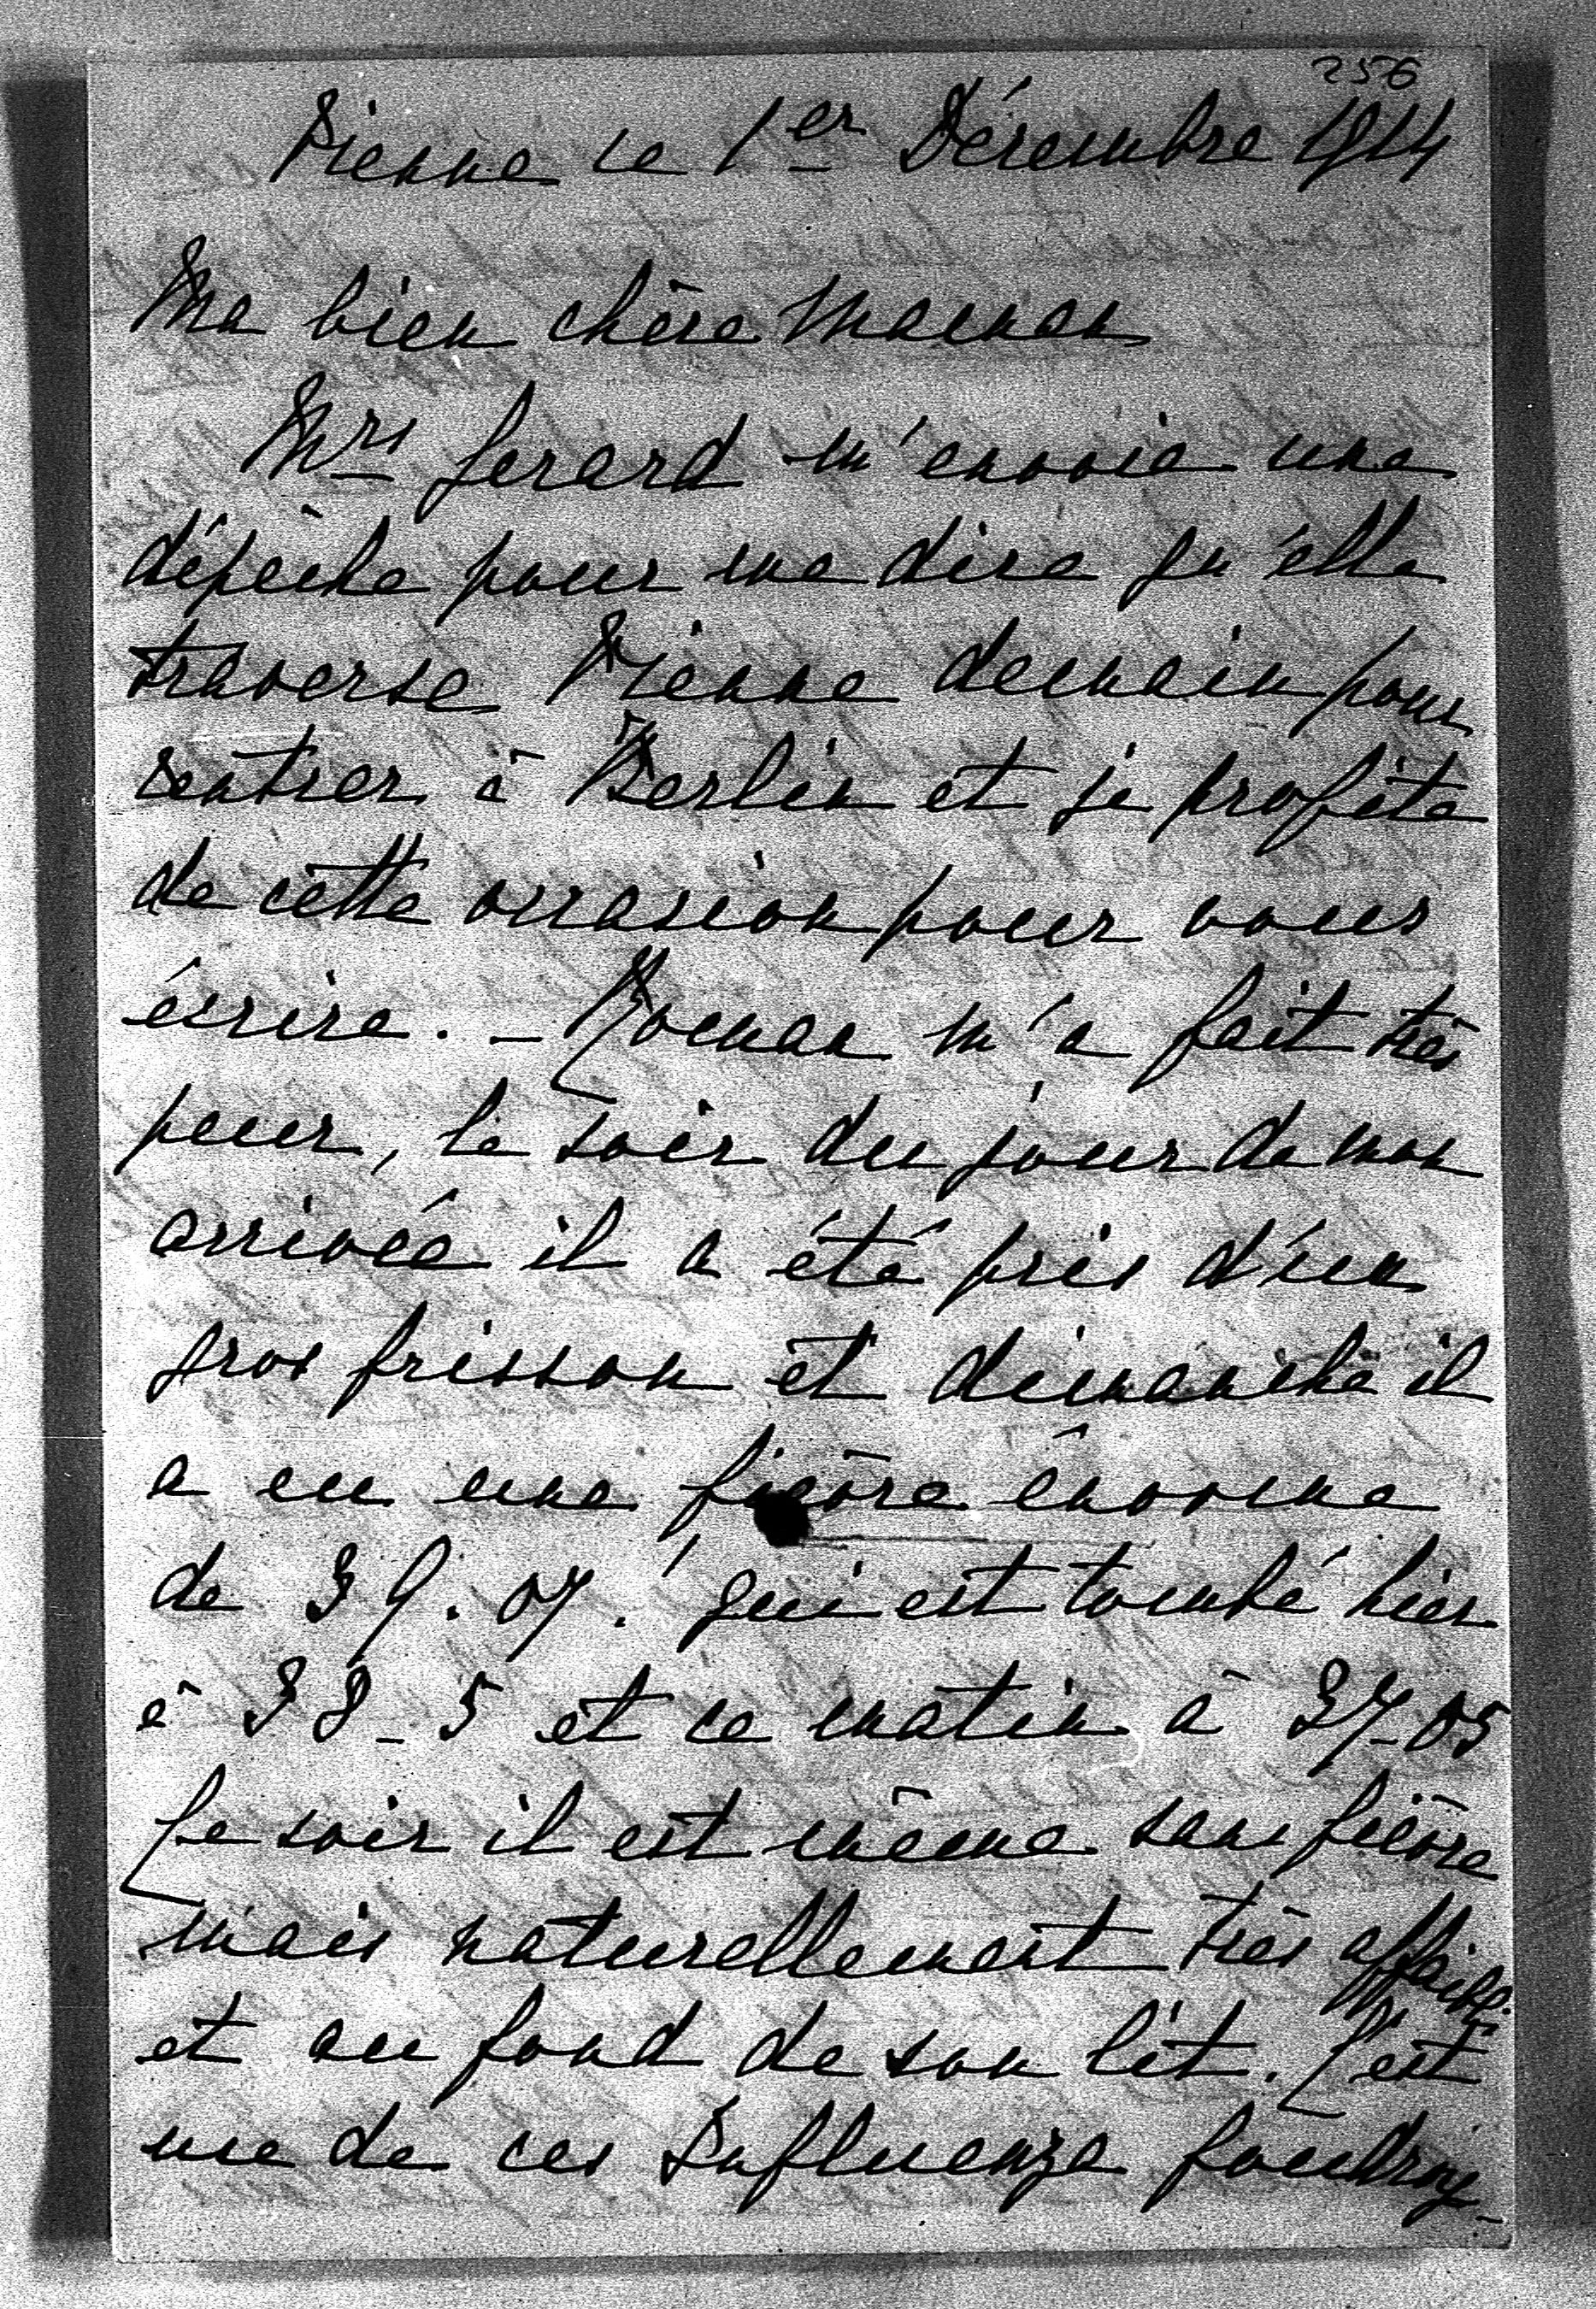 256
Vienne le 1er Décembre 1914
Ma bien chère Maman
Mrs Gerard m'envoie une
dépêche pour me dire qu'elle
traverse Vienne demain pour
rentrer à Berlin et je profite
de cette occasion pour vous
écrire. - m'a fait très
peur, le soir du jour de mon
arrivée il a été pris d'un
gros frisson et dimanche il
a eu une fièvre énorme
de 39.07. qui est tombé hier
à 38-5 et ce matin à 37-05
Ce soir il est même sans fièvre
mais naturellement très affaibl.
et au fond de son lit. C'est
une de ces Influenza foudroy-